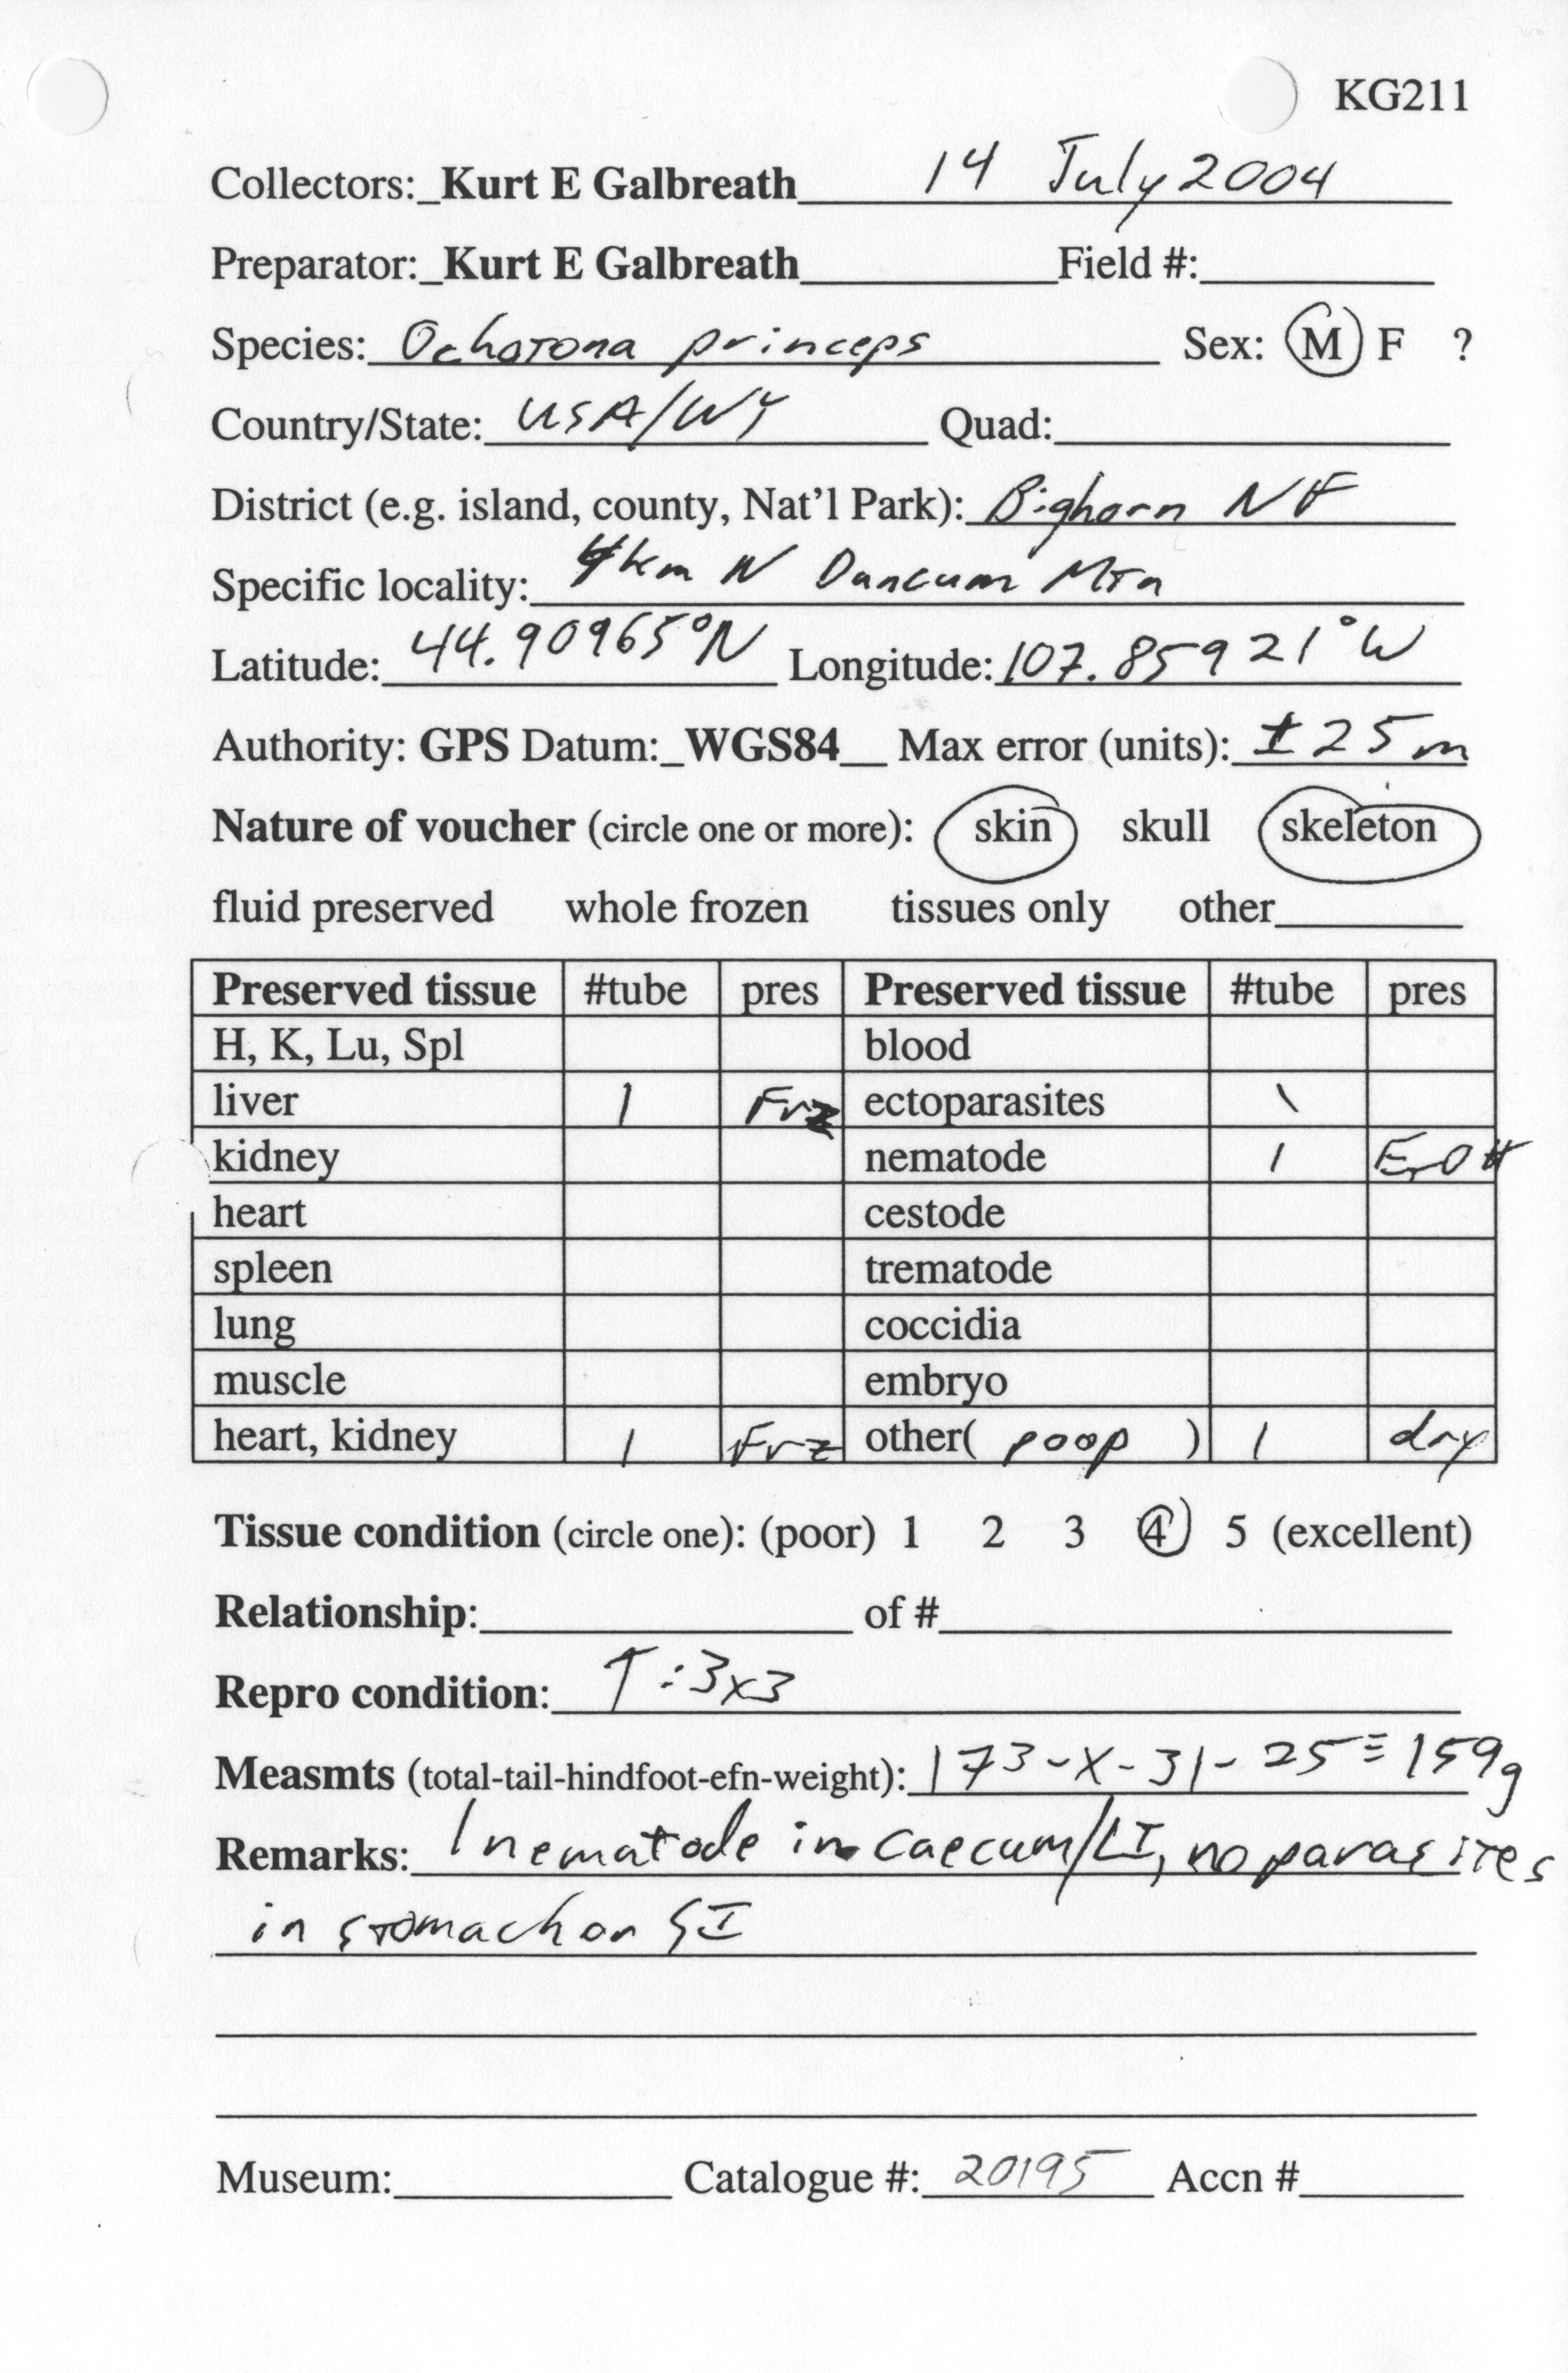 KG211
Collectors: _Kurt E Galbreath 14 July 2004
Preparator: _Kurt E Galbreath Field #:
Species: Ochotona princeps Sex: M F ?
Country/State: USA/WY Quad:
District (e.g. island, county, Nat'l Park): Bighorn NF
Specific locality: 4km N Duncum Mtn
Latitude: 44.90965°N Longitude: 107.85921°W
Authority: GPS Datum: _WGS84__ Max error (units): ±25m
Nature of voucher (circle one or more): skin skull skeleton
fluid preserved whole frozen tissues only other
Preserved tissue #tube pres Preserved tissue #tube pres
H, K, Lu, Spl blood
liver 1 Frz ectoparasites \
kidney nematode 1 EtOH
heart cestode
spleen trematode
lung coccidia
muscle embryo
heart, kidney 1 Frz other( poop ) 1 dry
Tissue condition (circle one): (poor) 1 2 3 4 5 (excellent)
Relationship: of #
Repro condition: T:3x3
Measmts (total-tail-hindfoot-efn-weight): 173-X-31-25≡159g
Remarks: 1 nematode in caecum/LI, no parasites
in stomach or SI
Museum: Catalogue #: 20195 Accn #